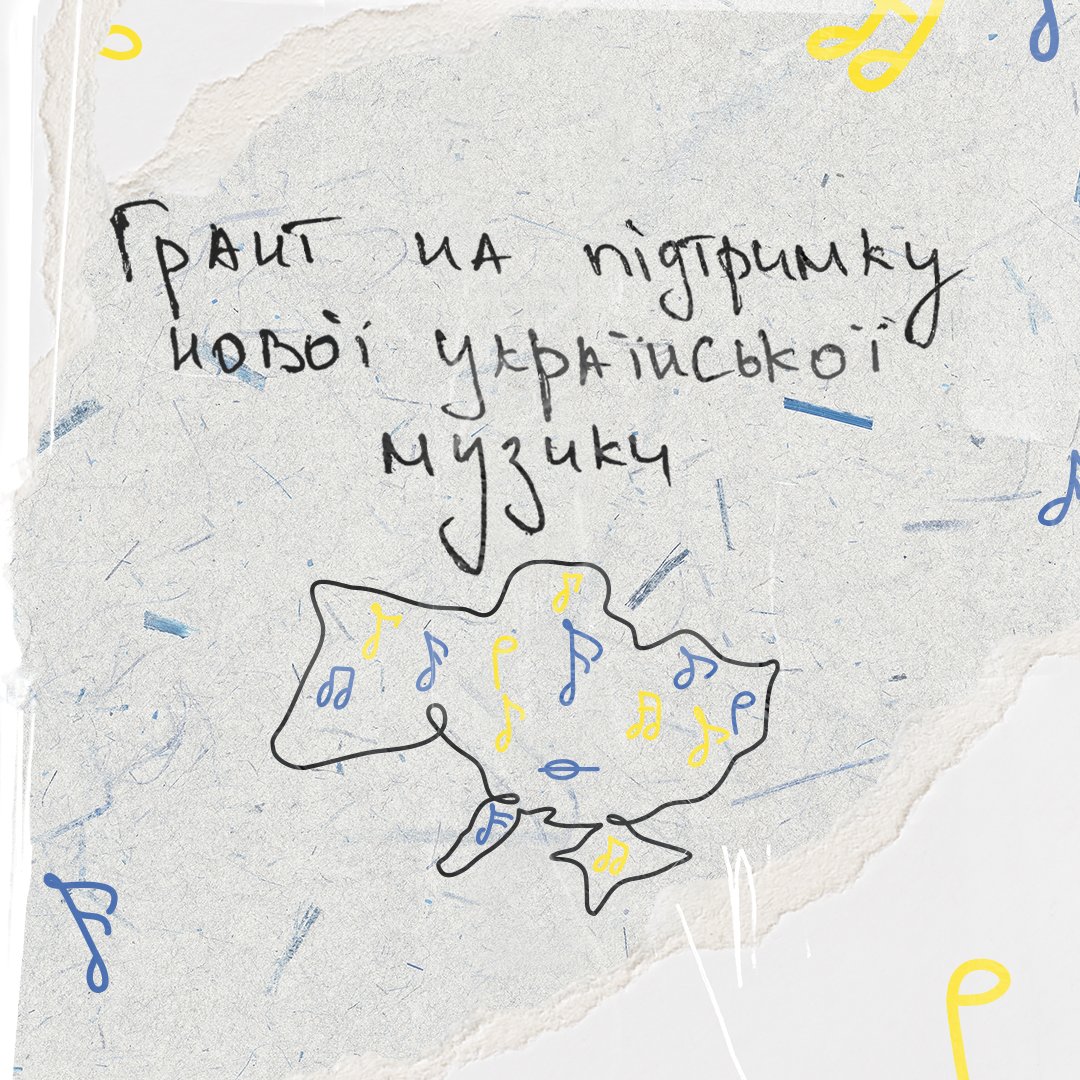 Грант на підтримку
нової української
музики